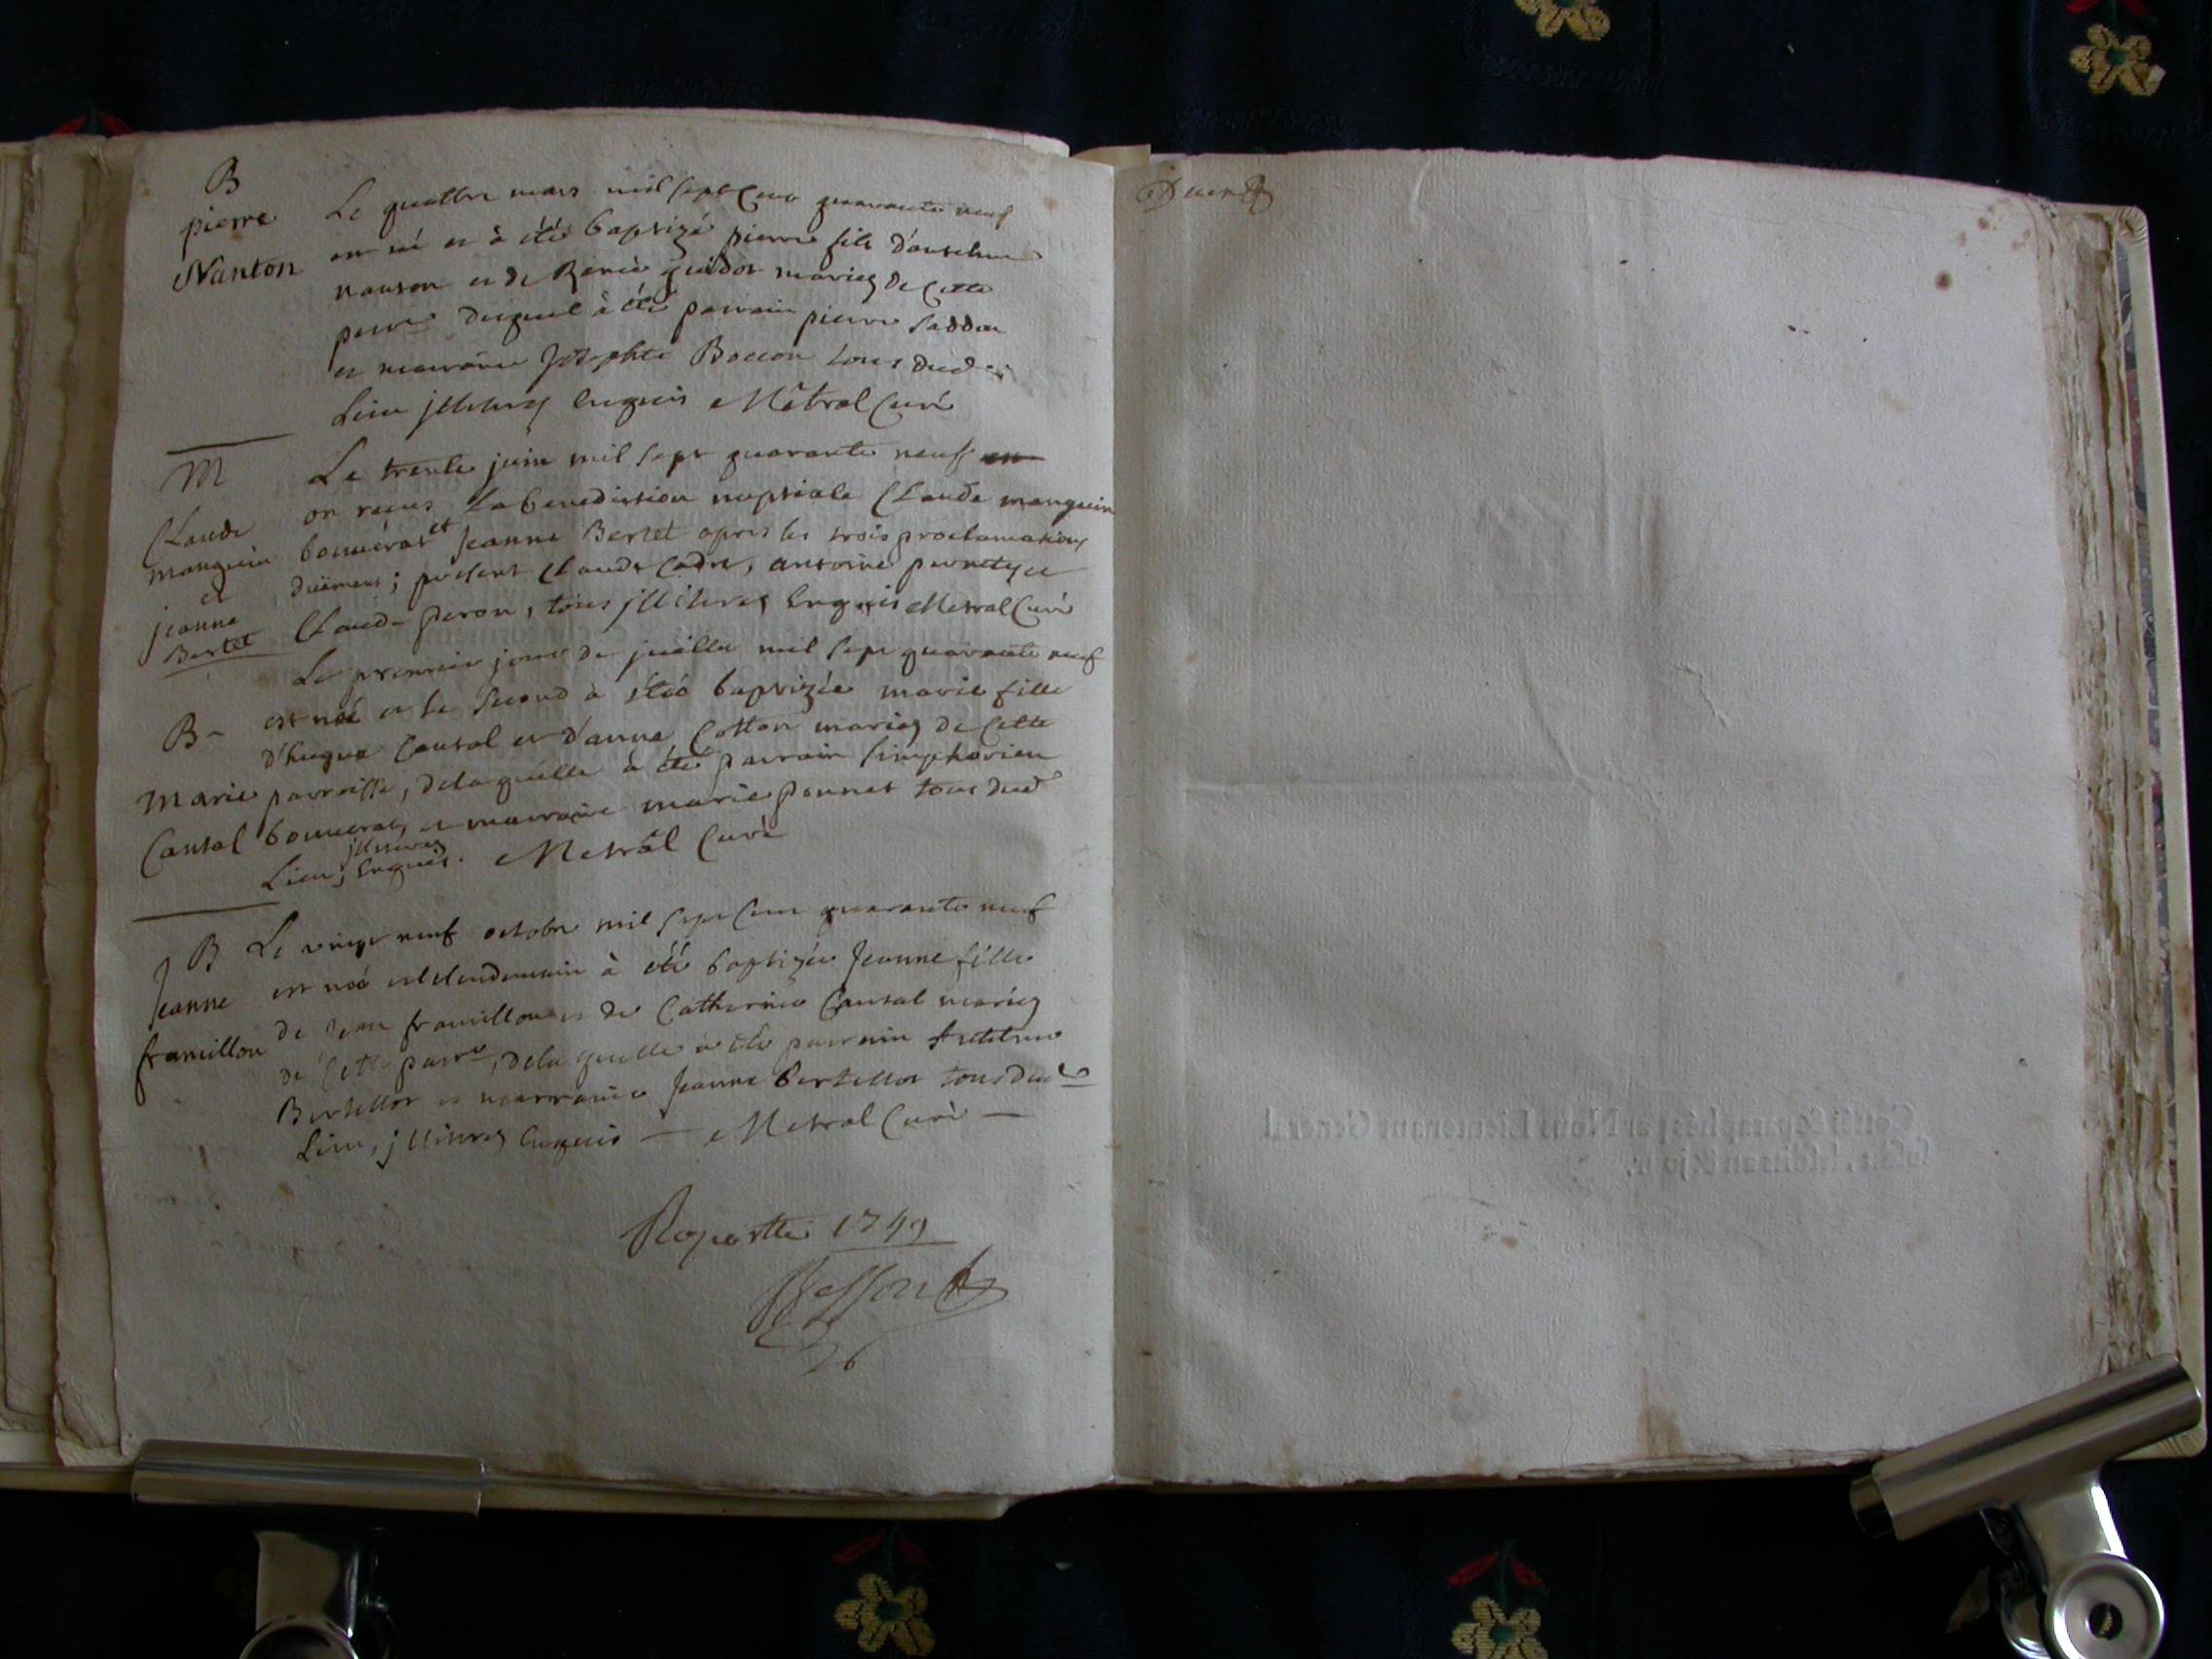 B
pierre
Nanton
Le quattre mars mil sept cens quarante neuf
est né et à été baptizé pierre fils d'antelme
nanton et de guidot mariez de cette
parre duquel à été parrain pierre
et marraine Josephte Boccon tous dud
Lieu jlliterez Enquis Métral Curé
M
Claude
manguin
et
jeanne
Bertet
Le trente juin mil sept quarante neuf
on reçus La benediction nuptiale Claude manguin
bouverat et Jeanne Bertet apres les trois proclamations
duëment; présent Claude Cadot, antoine pernet et
Claude peron, tous jlliterez Enquis Metral Curé
B
Marie
Cantal
Le premier jour de juillet mil sept quarante neuf
est née et le second à étéé baptizée marie fille
d'hugue Cantal et d'anne Cotton mariez de Cette
parroisse, de laquelle à été parrain simphorien
bouverat, et marraine marie ponnet tous dud
Lieu, jlliterez Enquis. Metral Curé
B
Jeanne
framillon
Le vingt neuf octobre mil sept cens quarante neuf
est néé et le lendemain à été baptizée Jeanne fille
de Jean framillon et de Catherine Cantal mariez
de Cette parre, de laquelle à été parrain Antelme
Bertellot et marraine Jeanne bertellot tous dud
Lieu, jlliterez Enquis — Metral Curé —
Raportté 1749
26